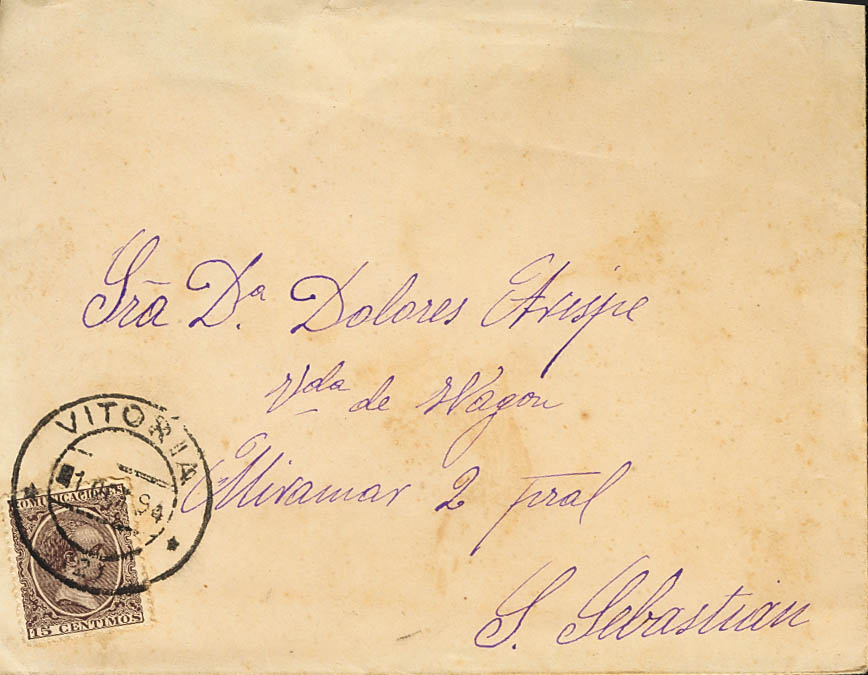 Sra Dª. Dolores Arispe
Vda de Wagon
Miramar 2 pral
S. Sebastián
VITORIA
94
COMUNICACIONES
15 CENTIMOS